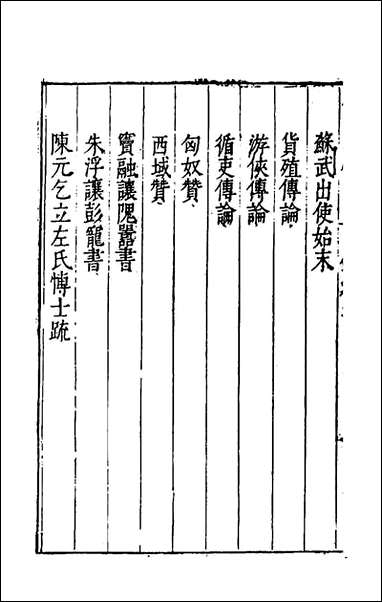 蘇武出使始末
貨殖傳論
游俠傳論
循吏傳論
匈奴贊
西域贊
竇融讓隗囂書
朱浮讓彭寵書
陳元乞立左氏博士疏